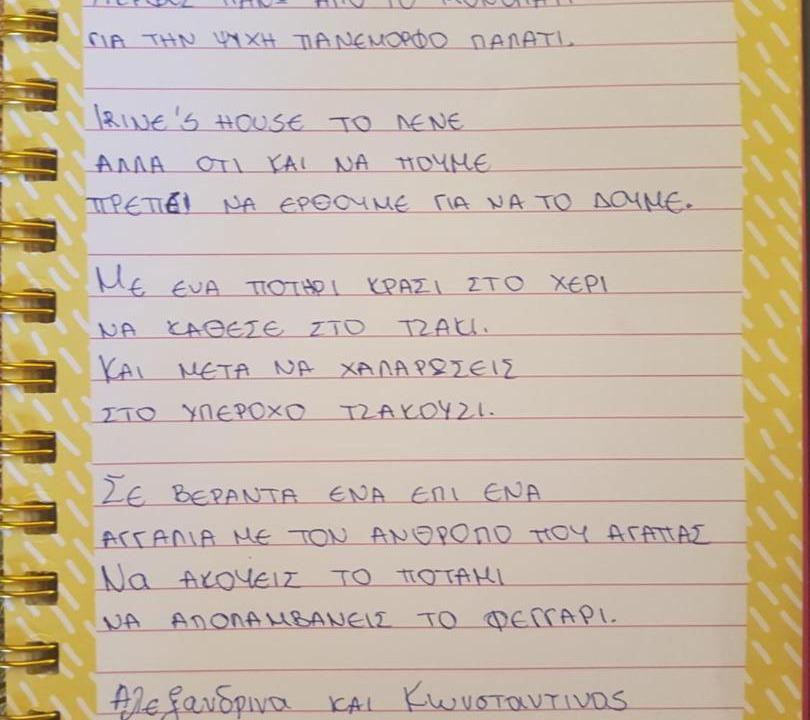 ΓΙΑ ΤΗΝ ΨΥΧΗ ΠΑΝΕΜΟΡΦΟ ΠΑΛΑΤΙ.
IRINE'S HOUSE ΤΟ ΛΕΝΕ
ΑΛΛΑ ΟΤΙ ΚΑΙ ΝΑ ΠΟΥΜΕ
ΠΡΕΠΕΙ ΝΑ ΕΡΘΟΥΜΕ ΓΙΑ ΝΑ ΤΟ ΔΟΥΜΕ.
ΜΕ ΕΝΑ ΠΟΤΗΡΙ ΚΡΑΣΙ ΣΤΟ ΧΕΡΙ
ΝΑ ΚΑΘΕΣΕ ΣΤΟ ΤΖΑΚΙ.
ΚΑΙ ΜΕΤΑ ΝΑ ΧΑΛΑΡΩΣΕΙΣ
ΣΤΟ ΥΠΕΡΟΧΟ ΤΖΑΚΟΥΖΙ.
ΣΕ ΒΕΡΑΝΤΑ ΕΝΑ ΕΠΙ ΕΝΑ
ΑΓΓΑΛΙΑ ΜΕ ΤΟΝ ΑΝΘΡΟΠΟ ΠΟΥ ΑΓΑΠΑΣ
Να ΑΚΟΥΕΙΣ ΤΟ ΠΟΤΑΜΙ
ΝΑ ΑΠΟΛΑΜΒΑΝΕΙΣ ΤΟ ΦΕΓΓΑΡΙ.
Αλεξανδρινα ΚΑΙ Κωνσταντινος